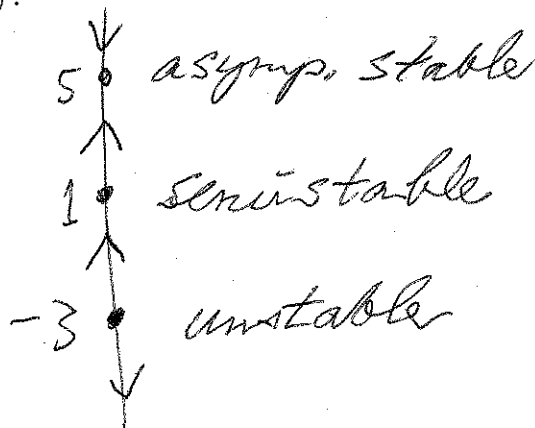 ).
5 asymp. stable
1 semistable
-3 unstable